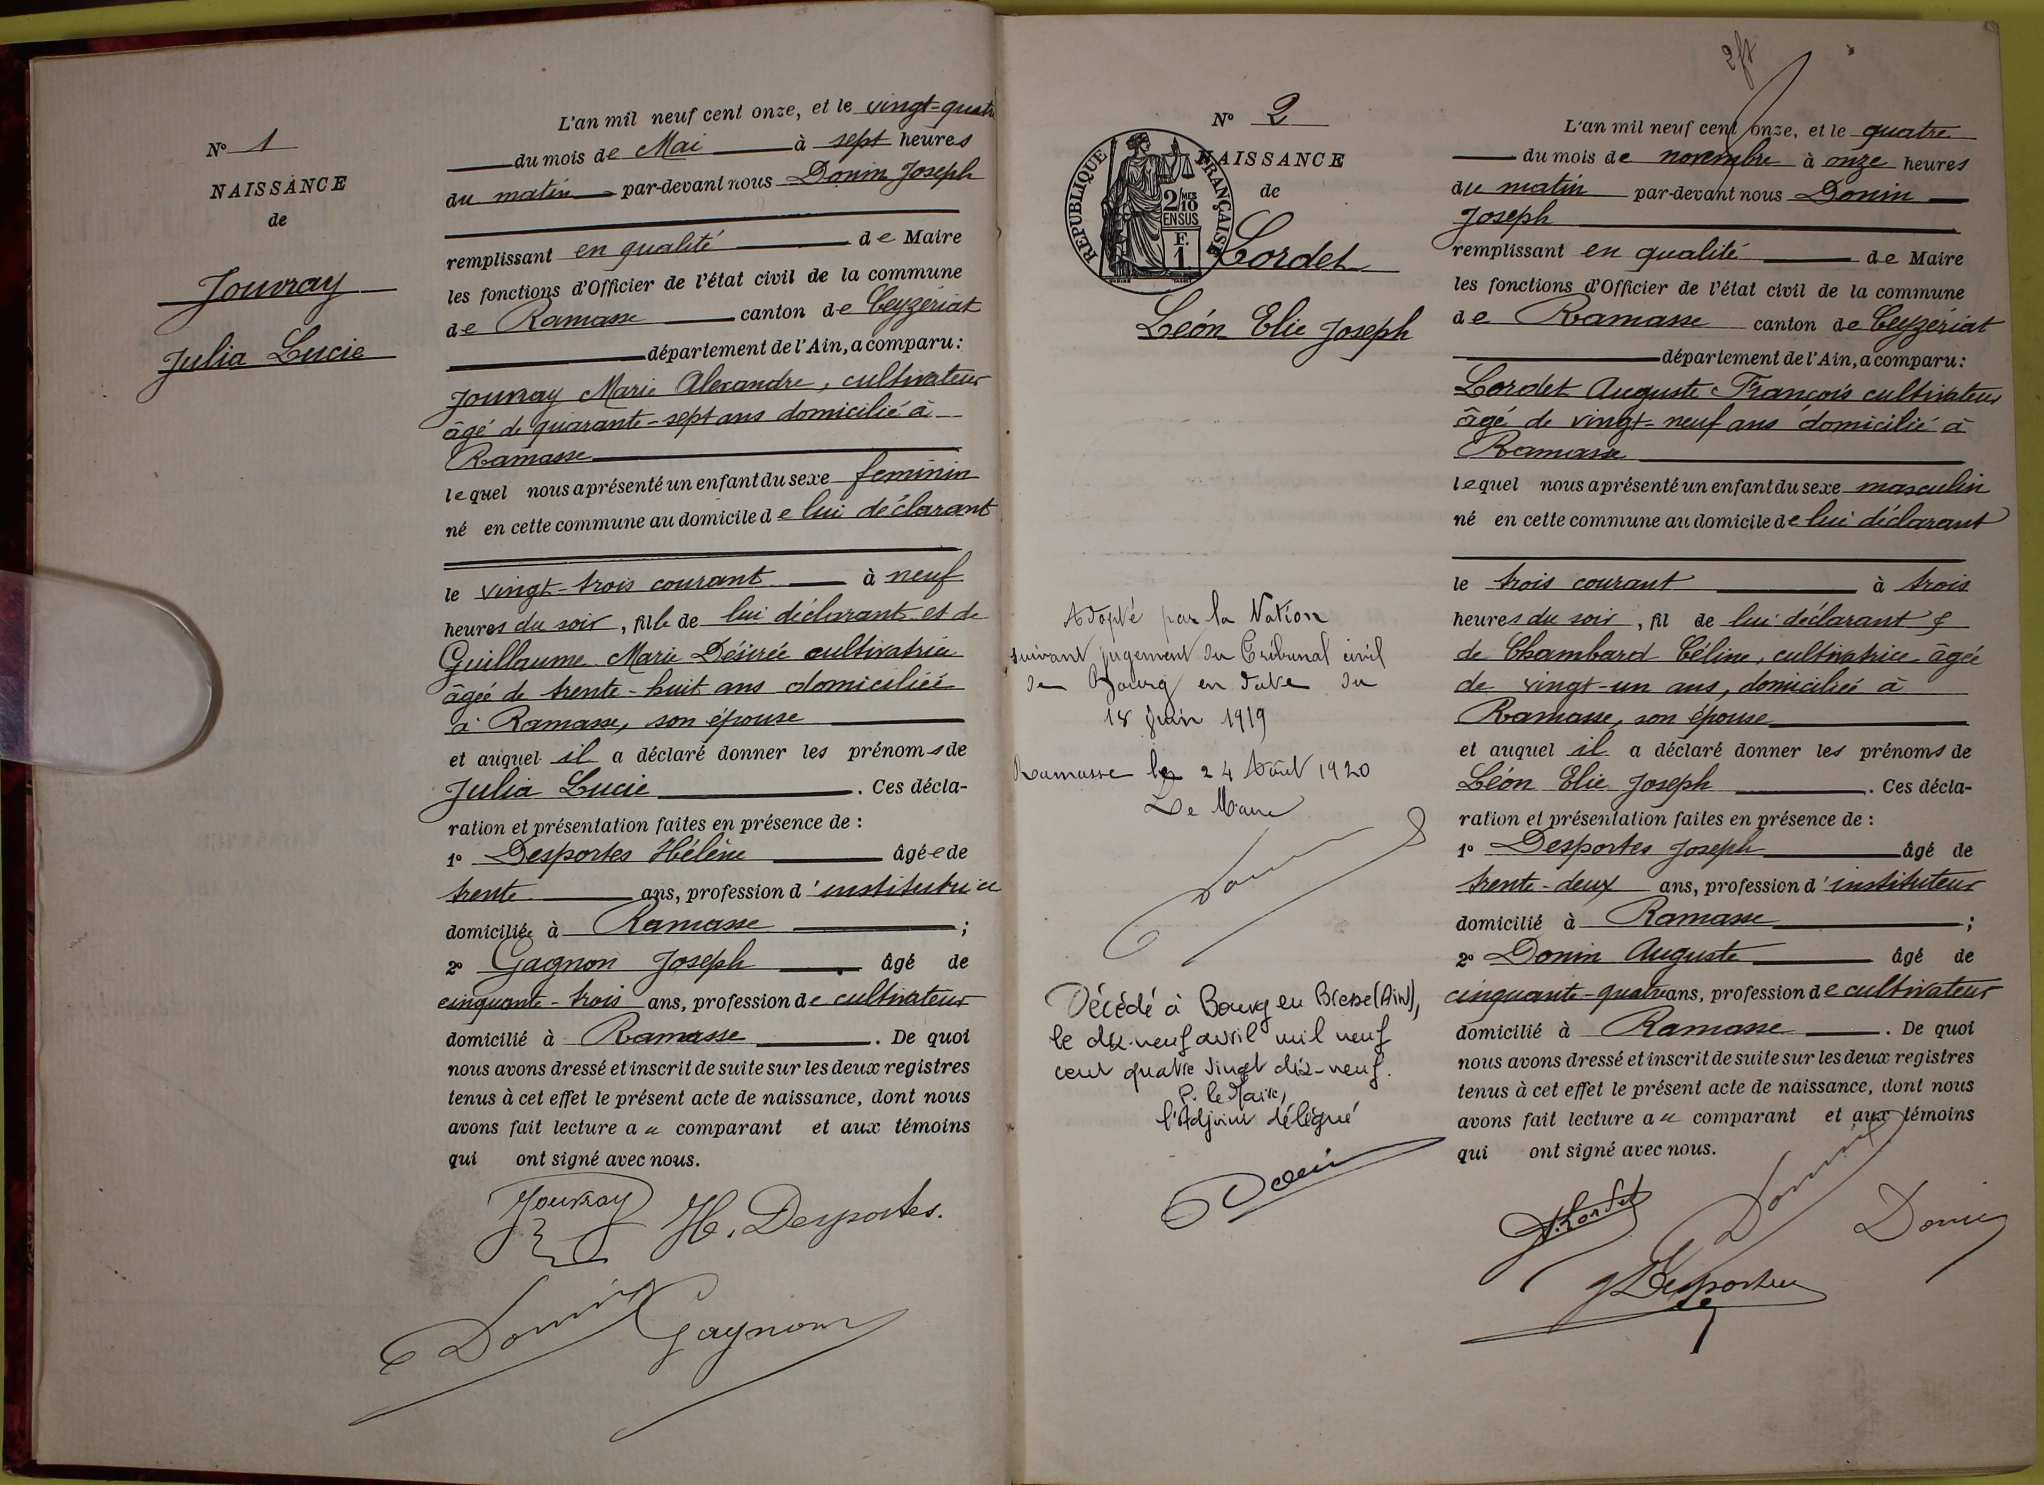 N° 1
NAISSANCE
de
Jouvray
Julia Lucie
L'an mil neuf cent onze, et le vingt-quatre
du mois de Mai à sept heures
du matin par-devant nous Donin Joseph
remplissant en qualité de Maire
les fonctions d'Officier de l'état civil de la commune
de Ramasse canton de Ceyzériat
département de l'Ain, a comparu :
Jouvray Marie Alexandre, cultivateur
âgé de quarante-sept ans domicilié à
Ramasse
lequel nous a présenté un enfant du sexe feminin
né en cette commune au domicile de lui déclarant
le vingt-trois courant à neuf
heures du soir, fille de lui déclarant et de
Guillaume Marie Désirée cultivatrice
âgée de trente-huit ans domiciliée
à Ramasse, son épouse
et auquel il a déclaré donner les prénoms de
Julia Lucie . Ces décla-
ration et présentation faites en présence de :
1° Desportes Hélène âgée de
trente ans, profession d'institutrice
domiciliée à Ramasse ;
2° Gagnon Joseph âgé de
cinquante-trois ans, profession de cultivateur
domicilié à Ramasse . De quoi
nous avons dressé et inscrit de suite sur les deux registres
tenus à cet effet le présent acte de naissance, dont nous
avons fait lecture au comparant et aux témoins
qui ont signé avec nous.
Jouvray H. Desportes.
Donin Gagnon
2 ft
N° 2
NAISSANCE
de
RÉPUBLIQUE FRANÇAISE
2/10 MES
EN SUS
F.
1
Lordet
Léon Elie Joseph
Adopté par la Nation
suivant jugement du Tribunal civil
de Bourg en date du
18 Juin 1919
Ramasse le 24 Août 1920
Le Maire
Donin
Décédé à Bourg en Bresse (Ain),
le dix-neuf avril mil neuf
cent quatre vingt dix-neuf.
P. le Maire,
l'Adjoint délégué
L'an mil neuf cent onze, et le quatre
du mois de novembre à onze heures
du matin par-devant nous Donin
Joseph
remplissant en qualité de Maire
les fonctions d'Officier de l'état civil de la commune
de Ramasse canton de Ceyzériat
département de l'Ain, a comparu :
Lordet Auguste François cultivateur
âgé de vingt-neuf ans domicilié à
Ramasse
lequel nous a présenté un enfant du sexe masculin
né en cette commune au domicile de lui déclarant
le trois courant à trois
heures du soir, fil de lui déclarant &
de Chambard Céline, cultivatrice âgée
de vingt-un ans, domiciliée à
Ramasse, son épouse
et auquel il a déclaré donner les prénoms de
Léon Elie Joseph . Ces décla-
ration et présentation faites en présence de :
1° Desportes Joseph âgé de
trente-deux ans, profession d'instituteur
domicilié à Ramasse ;
2° Donin Auguste âgé de
cinquante-quatre ans, profession de cultivateur
domicilié à Ramasse . De quoi
nous avons dressé et inscrit de suite sur les deux registres
tenus à cet effet le présent acte de naissance, dont nous
avons fait lecture au comparant et aux témoins
qui ont signé avec nous.
A. Lordet Donin Donin
J Desportes